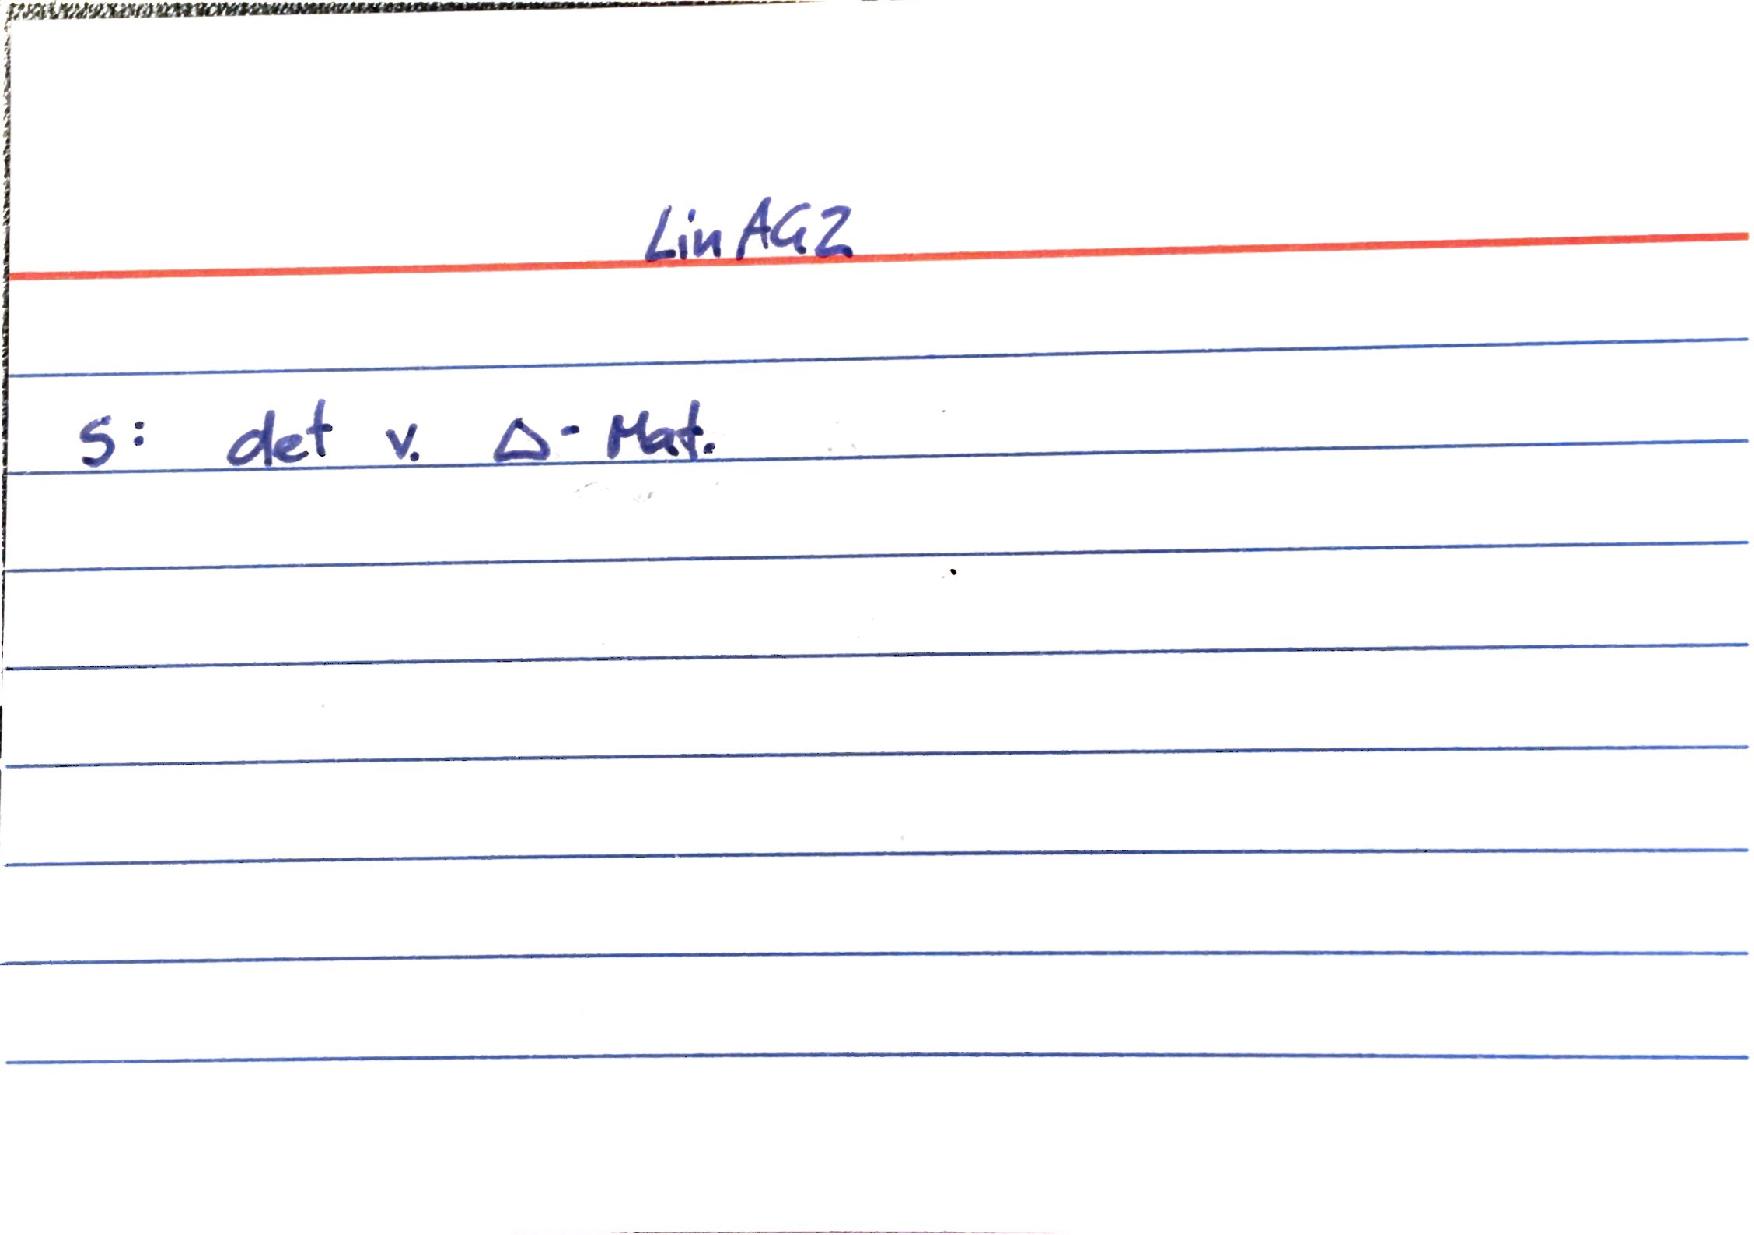 LinAG2
S: det v. Δ-Mat.